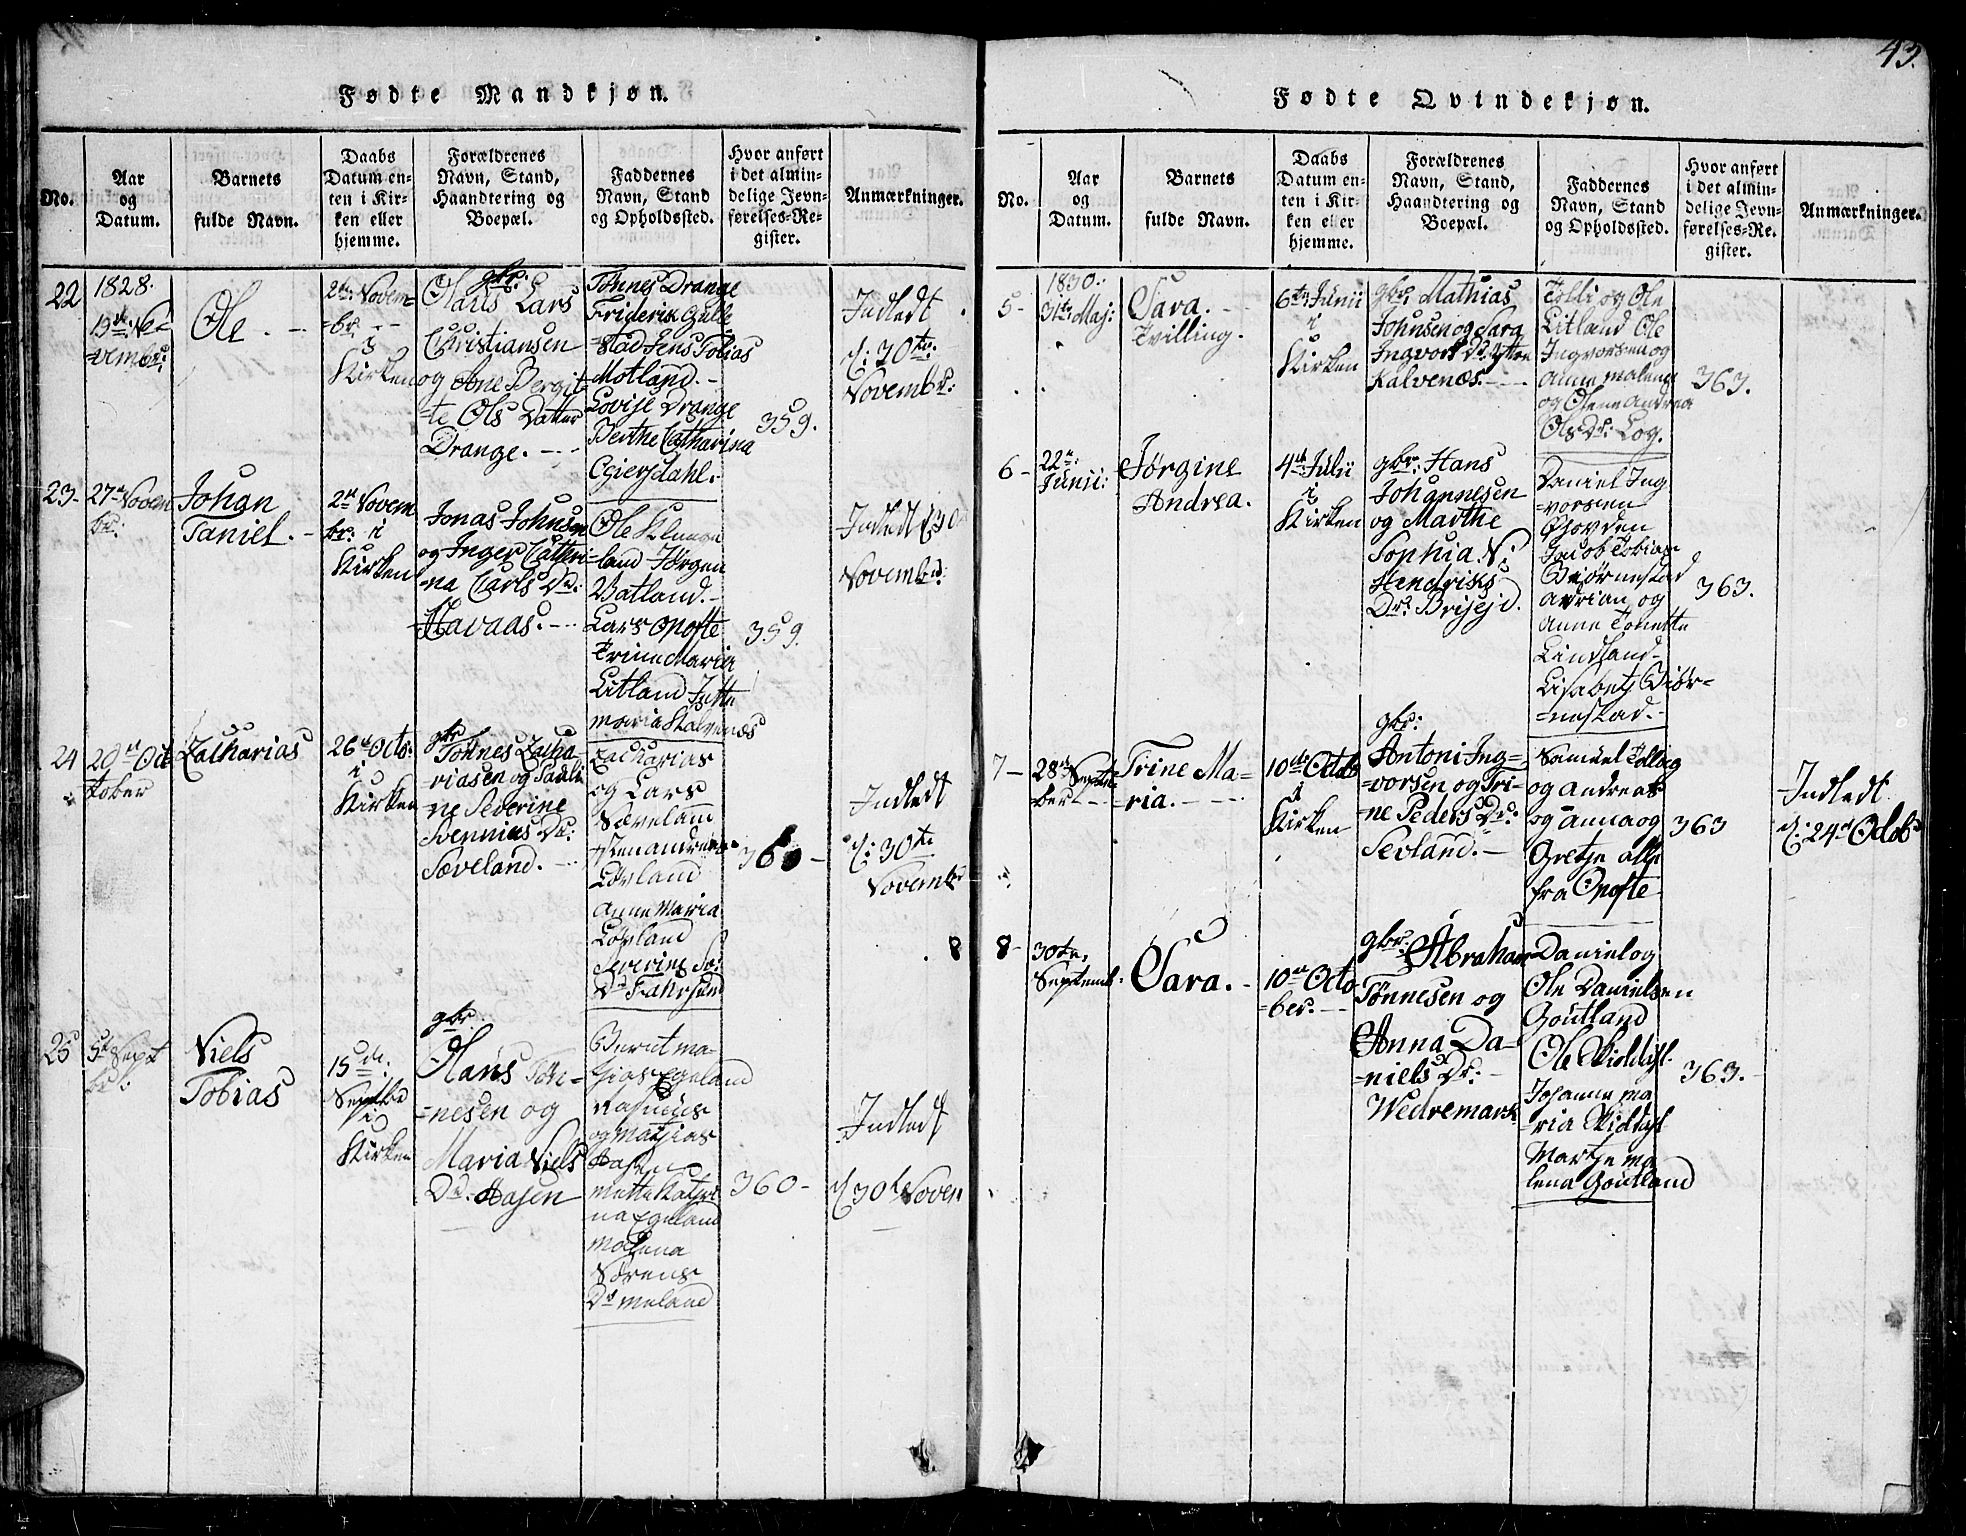 Fødte Mandkjøn.
No.
Aar
og
Datum.
Barnets
fulde Navn.
Daabs
Datum en-
ten i Kir-
ken eller
hjemme.
Forældrenes
Navn, Stand,
Haandtering og
Boepæl.
Faddernes
Navn, Stand
og Opholdssted.
Hvor anført
i det almin-
delige Jevn-
førelses-Re-
gister.
Anmærkninger.
22
1828.
19de No-
vembr:
Ole.
2den Novem-
br.
i
Kirken
gbr:
Lars
Christiansen
og Ane Bergit-
te Ols Datter
Drange.
Tønnes Drange
Friderik Gulle-
stad Jens Tobias
Motland.
Lovise Drange
Berthe Catharina
Egiersdahl.
359.
Indledt
d: 30te
Novembr:
23-
27de Novem
br:
Johan
Taniel.
2den Novem
br: i
Kirken
Jonas Johnsen
og Inger Cathri-
na Carls Dr:
Havaas.
Ole Klunge-
land Jørgen
Vatland.
Lars Opofte
Trine Maria
Litland Jutte
Maria Kalvenæs
359.
Indledt d 30
Novembr:
24
20de Oc-
tober
Zacharias
26de Octb:
i
Kirken
gbr
Tønnes Zacha-
riasen og Pauli-
ne Severine
Svennings Dr:
Sæveland.
Zacharias
og Lars
Sævelam
Sten andreas
Løvland
Anne Maria
Løvland
Severine Sv:
Dr Fahrsund
360-
Indledt
d: 30te
Novembr
25
5te Sept
br:
Niels
Tobias
15de:
Septbr
i
Kirken
gbr.
Hans Tøn-
nesen og
Maria Niels
Dr. Aasen
Beruet ma-
thias Egeland
Rasmus
og Mathias
Aasen
Mette Kathri
na Egeland
Malena
Sørens
Dr meland
360-
Indledt
d 30te Novem
43.
Fødte Qvindekjøn.
No.
Aar
og
Datum.
Barnets
fulde Navn.
Daabs
Datum en-
ten i Kir-
ken eller
hjemme.
Forældrenes
Navn, Stand,
Haandtering og
Boepæl.
Faddernes
Navn, Stand
og Opholdssted.
Hvor anført
i det almin-
delige Jevn-
førelses-Re-
gister.
Anmærkninger.
5-
1830.
31te Maj:
Sara.
Tvilling.
6te Junii
i
Kirken
gbr: Mathias
Johnsen og Sara
Ingvors Dr. Yttre
Kalvenæs.
Tolli og Ole
Litland Ole
Ingvorsen og
Anne Malene
og Olene Andrea
Ols Dr: Log.
363.
6-
22de
Junii:
Jørgine
Andrea.
4de Julii
i
Kirken
gbr: Hans
Johannesen
og Marthe
Sophia N:
Hendriks
Dr: Briseid.
Daniel Ing-
vorsen
Gjovden
Jacob Tobias
Biørnestad
Adrian og
Anne Tonette
Lindland
Lisabeth Biør-
nestad.
363.
7-
28de Septem-
ber
Trine Ma-
ria.
10de Octob
i
Kirken
gbr:
Antoni Ing-
vorsen og Tri-
ne Peders Dr:
Sevland.
Samuel Tollag
og Andreas
og Anna og
Gretje alle
fra Opofte
363
Indledt
d: 24de Octob
8
8-
30te
Septemb.
Sara.
10de Octo-
ber.
gbr: Abraham
Tønnesen og
Anna Da-
niels Dr:
Wedremark
Daniel og
Ole Danielsen
Goutland
Ole Skiddist.
Johanne ma
ria Skiddist
Marthe ma
lena Goutland
363.